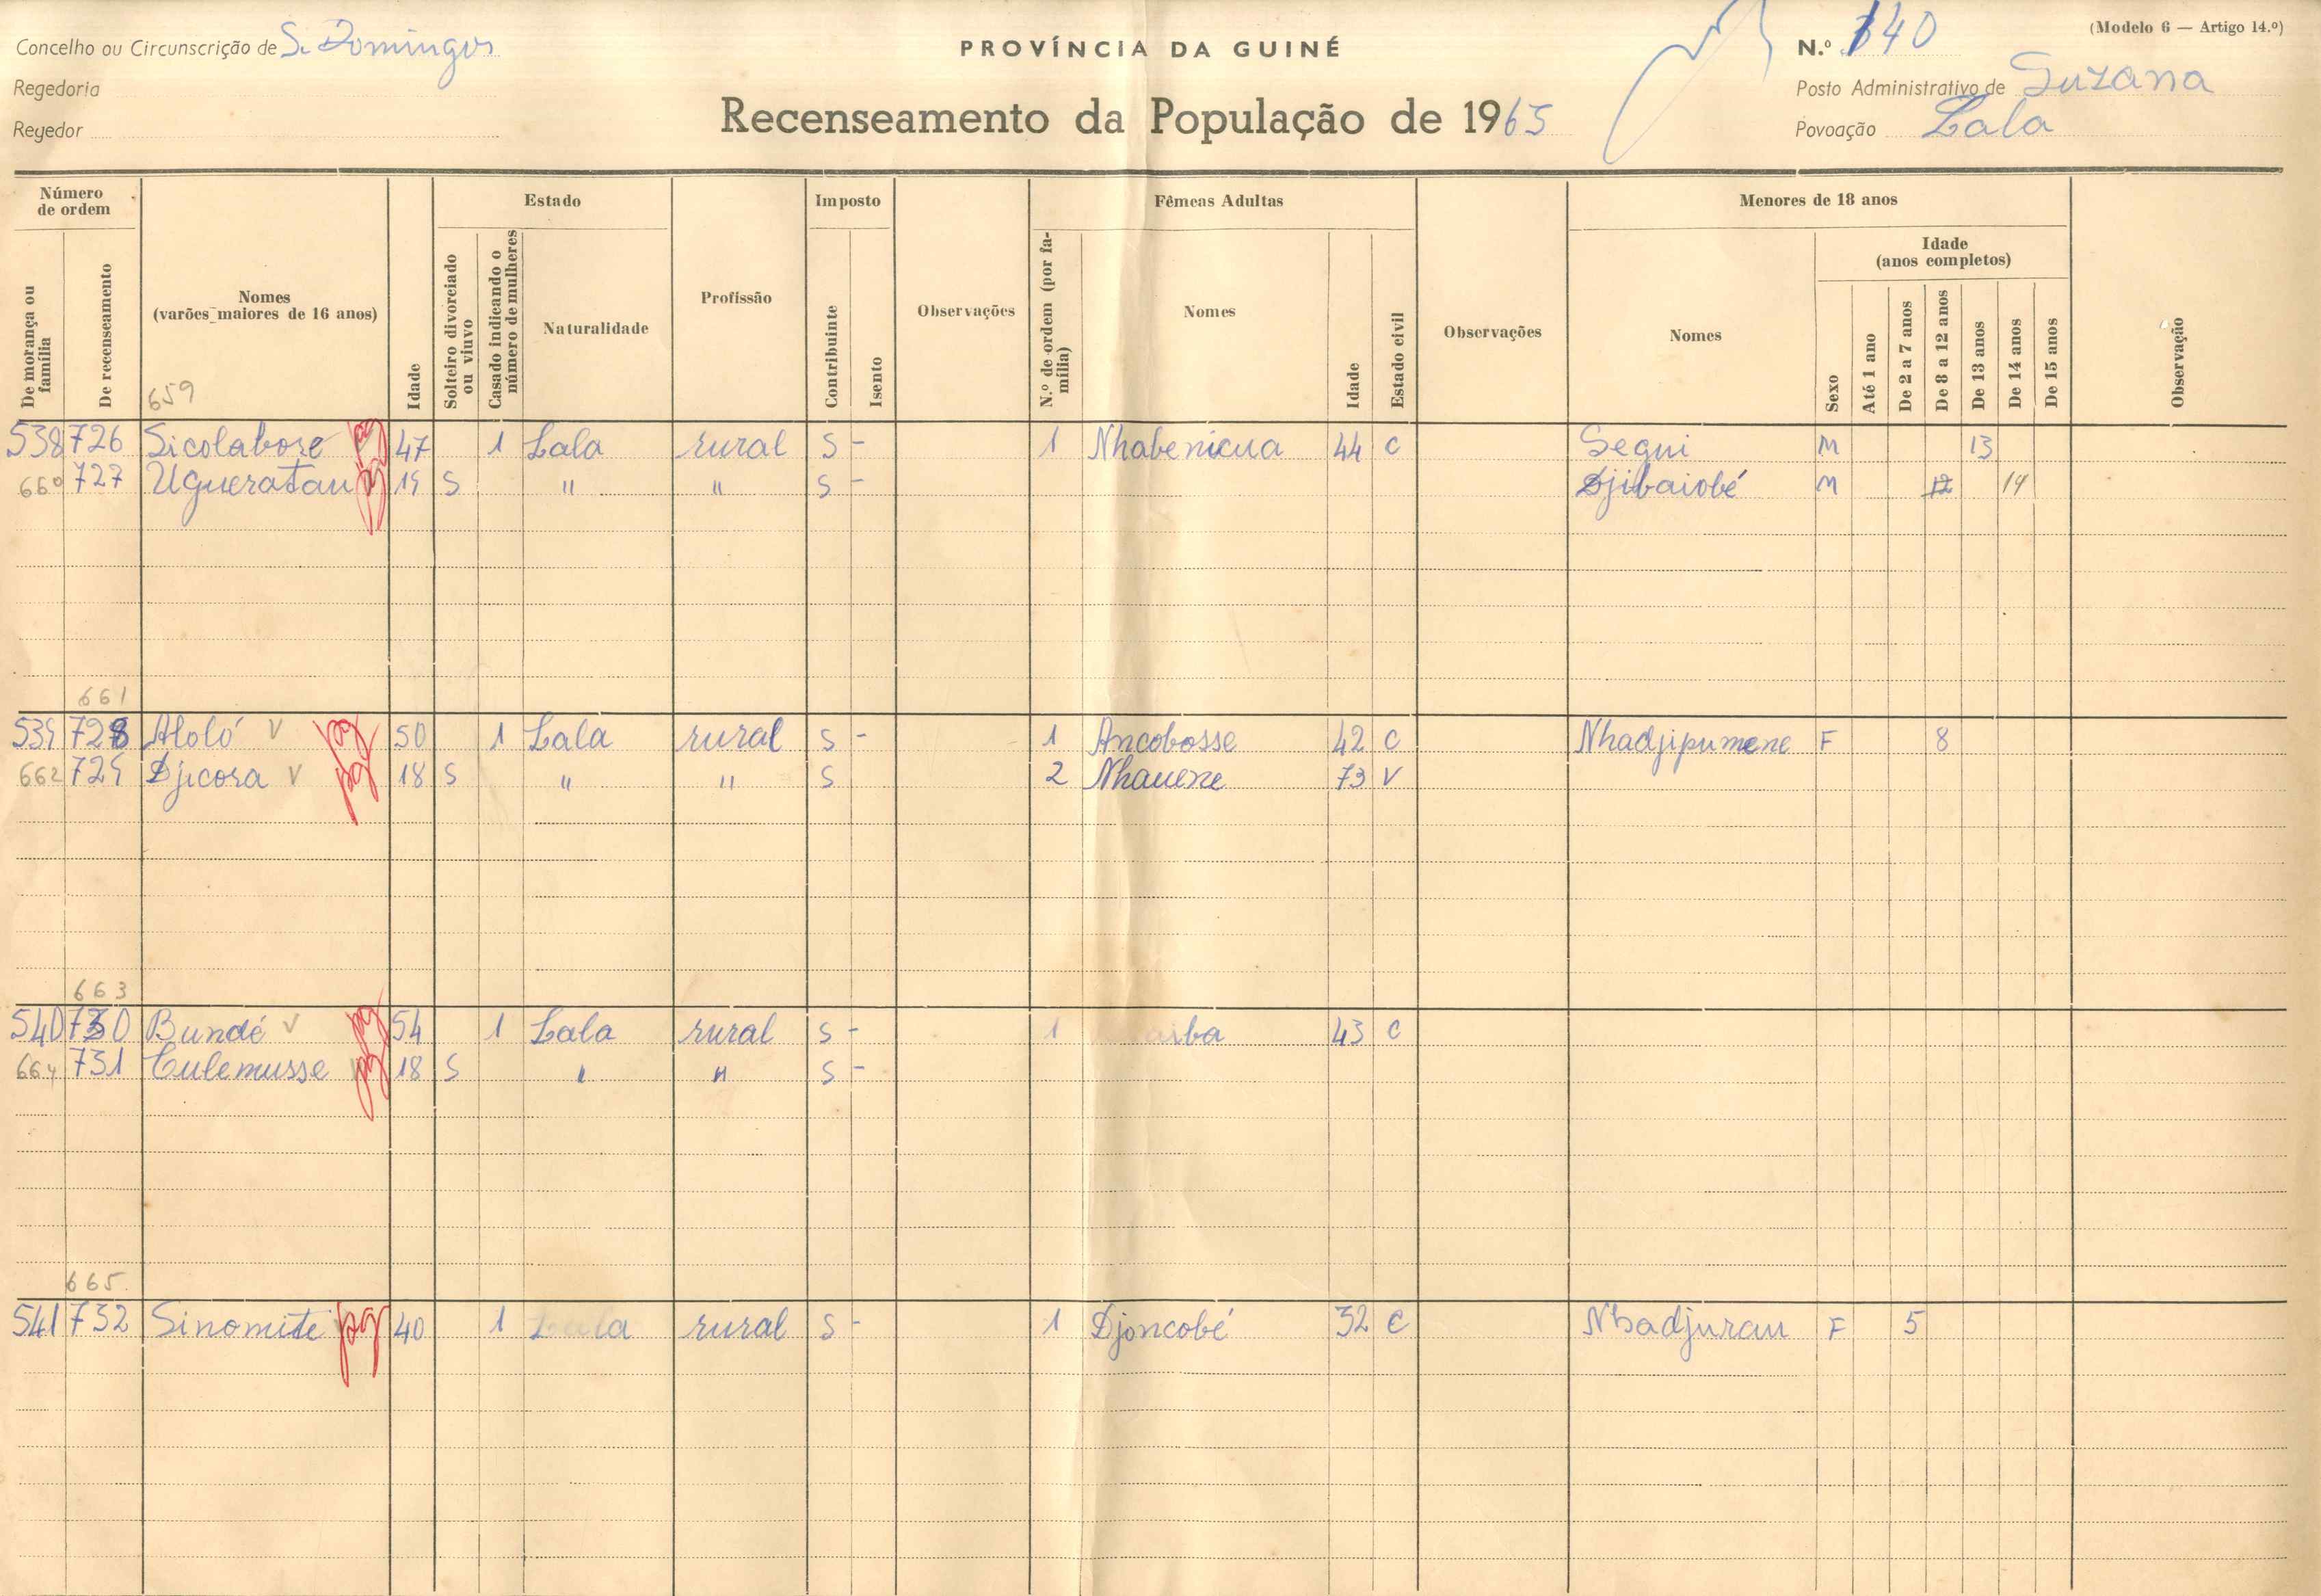 (Modelo 6 — Artigo 14.º)
Concelho ou Circunscrição de S. Domingos
PROVÍNCIA DA GUINÉ
N.º 140
Regedoria
Posto Administrativo de Suzana
Regedor
Recenseamento da População de 1965
Povoação Lala
Número de ordem
Estado
Imposto
Fêmeas Adultas
Menores de 18 anos
De morança ou família
De recenseamento
Nomes (varões maiores de 16 anos)
Idade
Solteiro divorciado ou viuvo
Casado indicando o número de mulheres
Naturalidade
Profissão
Contribuinte
Isento
Observações
N.º de ordem (por família)
Nomes
Idade
Estado civil
Observações
Nomes
Sexo
Idade (anos completos)
Até 1 ano
De 2 a 7 anos
De 8 a 12 anos
De 13 anos
De 14 anos
De 15 anos
Observação
659
538 726 Sicolabose pg 47 1 Lala rural S - 1 Nhabenicua 44 C Segui M 13
660 727 Ugueratau pg 19 S " " S - Djibaiobé M 12 14
661
539 728 Aloló V pg 50 1 Lala rural S - 1 Ancobosse 42 C Nhadjipumene F 8
662 729 Djicora V pg 18 S " " S 2 Nhauene 73 V
663
540 730 Bundé V pg 54 1 Lala rural S - 1 43 C
664 731 Culemusse V pg 18 S " " S -
665
541 732 Sinomite pg 40 1 Lala rural S - 1 Djoncobé 32 C Nhadjurau F 5